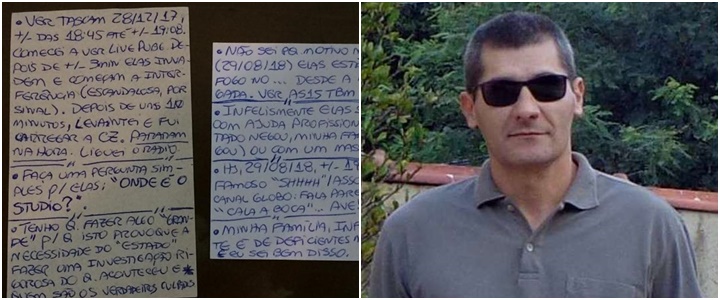 • VER TASCAM 28/12/17,
+/- DAS 18:45 ATÉ +/- 19:08.
COMECEI A VER LIVE PUBE DE-
POIS DE +/- 3MIN ELAS INVA-
DEM E COMEÇAM A INTER-
FERÊNCIA (ESCANDALOSA, POR
SINAL). DEPOIS DE UNS 10
MINUTOS, LEVANTEI E FUI
CARREGAR A CZ. PARARAM
NA HORA. LIGUEI O RÁDIO.
• FAÇA UMA PERGUNTA SIM-
PLES P/ ELAS: "ONDE É O
STUDIO?".
• TENHO Q. FAZER ALGO "GRAN-
DE" P/ Q ISTO PROVOQUE A
NECESSIDADE DO "ESTADO"
FAZER UMA INVESTIGAÇÃO RI-
GOROSA DO Q. ACONTECEU E
QUEM SÃO OS VERDADEIROS CULPADOS
• NÃO SEI PQ MOTIVO N
(29/08/18) ELAS EST
FOGO NO... DESDE A
GADA. VER AS 15 TBM
• INFELISMENTE ELAS
COM AJUDA PROFISSION
TADO NEGOU, MINHA FA
GOU) OU COM UM MAS
• HJ, 29/08/18, +/- 19
FAMOSO "SHHHH"/ASSO
CANAL GLOBO. FALA PARE
"CALA A BOCA"... AVE
• MINHA FAMÍLIA, INF
TE É DE DEFICIENTES M
E EU SEI BEM DISSO.